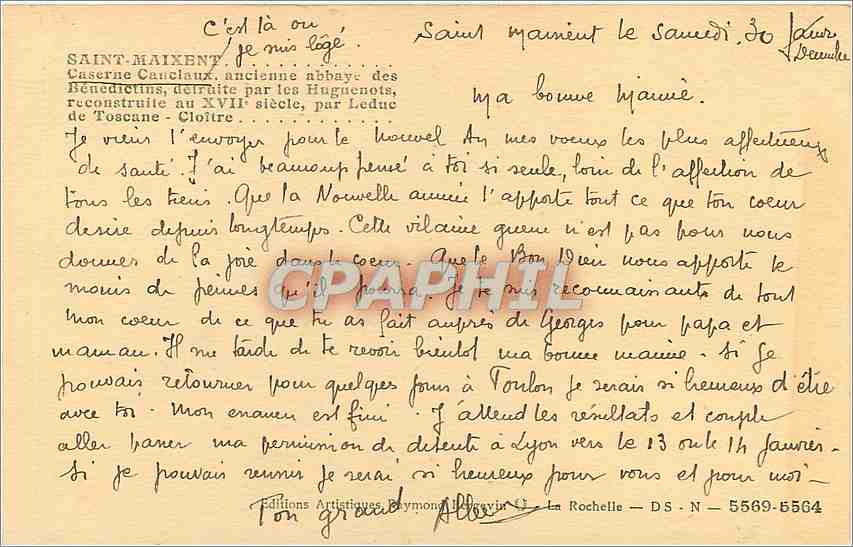 C'est là ou
je suis logé.
Saint Maixent le samedi. 30 Janv
Decembre
SAINT-MAIXENT. . . . . . . . . . .
Caserne Canclaux, ancienne abbaye des
Bénédictins, détruite par les Huguenots,
reconstruite au XVIIe siècle, par Leduc
de Toscane - Cloître. . . . . . . . . . .
Ma bonne Mamie.
Je viens t'envoyer pour le Nouvel An mes voeux les plus affectueux
de santé. J'ai beaucoup pensé à toi si seule, loin de l'affection de
tous les tiens. Que la Nouvelle année t'apporte tout ce que ton coeur
desire depuis longtemps. Cette vilaine guerre n'est pas pour nous
donner de la joie dans le coeur. Que le Bon Dieu nous apporte le
moins de peines qu'il pourra. Je te suis reconnaissante de tout
mon coeur de ce que tu as fait auprès de Georges pour papa et
maman. Il me tarde de te revoir bientot ma bonne mamie. Si je
pouvais retourner pour quelques jours à Toulon je serais si heureux d'être
avec toi. Mon examen est fini. J'attend les résultats et compte
aller passer ma permission de detente à Lyon vers le 13 ou le 14 Janvier.
Si je pouvais reussir je serai si heureux pour vous et pour moi-
Ton grand
Editions Artistiques Raymond Bergevin La Rochelle — DS - N — 5569-5564
CPAPHIL